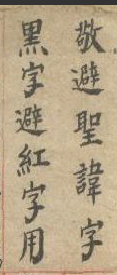 敬避聖諱字
黑字避紅字用